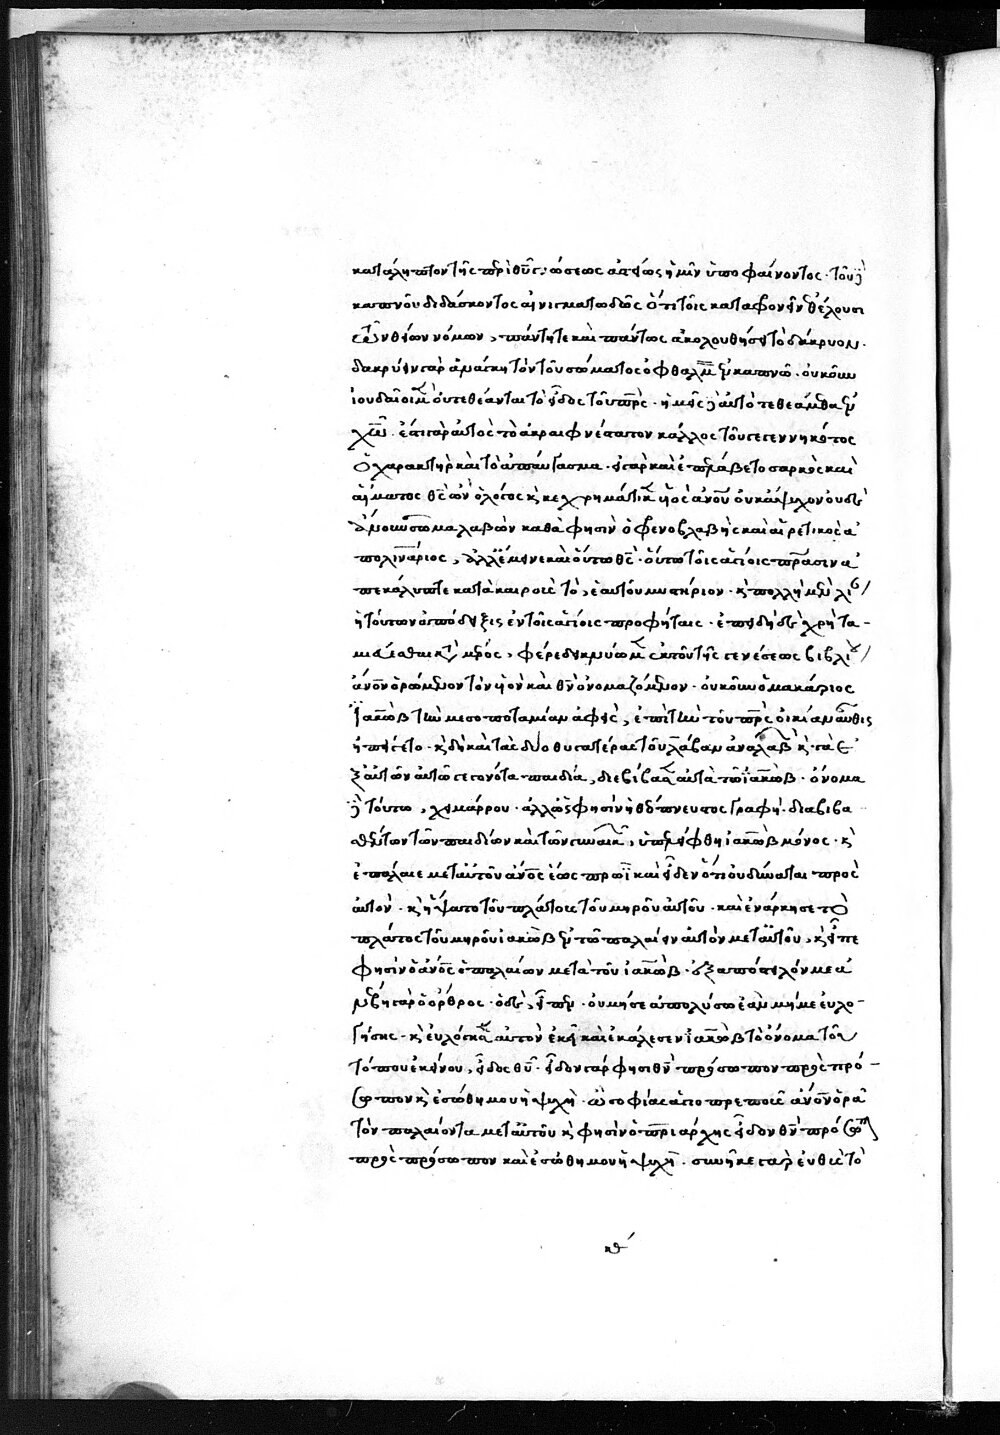 κατάληπτον τῆς περὶ θυ ώσεως ἀτεχνῶς ἡμῖν ὑποφαίνοντος. τοῦ δὲ
καπνοῦ διδάσκοντος αἰνιγματωδῶς ὅτι τοῖς καταφρονεῖν θέλουσι
τῶν θείων νόμων, πάντη τε καὶ πάντως ἀκολουθήσει τὸ δάκρυον.
δακρύειν γὰρ ἀνάγκη τὸν τοῦ σώματος ὀφθαλμὸν ἐν καπνῶ. οὐκοῦν
ἰουδαῖοι μὲν οὐ τεθέανται τὸ εἶδος τοῦ πρς. ἡμεῖς δὲ αὐτὸ τεθεάμεθα ἐν
χω. ἐπεὶ γὰρ αὐτὸς τὸ ἀκραιφνέστατον κάλλος τοῦ γεγεννηκότος
ὁ χαρακτὴρ καὶ τὸ ἀπαύγασμα. εἰ γὰρ καὶ ἐπελάβετο σαρκὸς καὶ
αἵματος θς ὢν ὁ λόγος κὶ κεχρημάτικεν υς ἀνου οὐκ ἄψυχον οὐδὲ
ἄνουν σῶμα λαβὼν καθὰ φησὶν ὁ φρενοβλαβὴς καὶ αἱρετικὸς ἀ
πολινάριος, ἀλλ' ἔμεινε καὶ οὕτω θς. οὕτω τοῖς ἁγίοις πρασιν ἀ
πεκάλυπτε κατὰ καιροὺς τὸ ἑαυτοῦ μυστήριον. κὶ πολλὴ μὲν λι
ἡ τούτων ἀπόδειξις ἐν τοῖς ἁγίοις προφήταις. ἐπειδὴ δὲ χρὴ τα-
μιεύεσθαι μέρος, φέρε δεικνύωμεν ἐκ τοῦ τῆς γενέσεως βιβλίου
ἀνον ὁρώμενον τὸν υν καὶ θν ὀνομαζόμενον. οὐκοῦν ὁ μακάριος
ἰακὼβ τὴν μεσοποταμίαν ἀφεὶς, ἐπὶ τὴν τοῦ πρς οἰκίαν αὖθις
ἠπείγετο. κὶ δὴ καὶ τὰς δύο θυγατέρας τοῦ λάβαν ἀναλαβὼν κὶ τὰ ἐ
ξ αὐτῶν αὐτῶ γεγονότα παιδία, διεβίβασεν αὐτὰ τῶ ἰακὼβ. ὄνομα
δὲ τούτω, χειμάρρου. ἀλλ' ὥς φησὶν ἡ θεόπνευστος γραφὴ. διαβιβα
σθέντων τῶν παιδίων καὶ τῶν γυναικῶν, ὑπελείφθη ἰακὼβ μόνος. κὶ
ἐπάλαιε μετ' αὐτοῦ ἀνος ἕως πρωῒ καὶ εἶδεν ὅτι οὐ δύναται πρὸς
αὐτὸν. κὶ ἥψατο τοῦ πλάτους τοῦ μηροῦ αὐτοῦ. καὶ ἐνάρκησε τὸ
πλάτος τοῦ μηροῦ ἰακὼβ ἐν τῶ παλαίειν αὐτὸν μετ' αὐτοῦ, κὶ εἶπέ
φησὶν ὁ ἀνος ὁ παλαίων μετὰ τοῦ ἰακὼβ. ἐξαπόστειλόν με ἀ
νέβη γὰρ ὁ ὄρθρος. ὁ δὲ, εἶπεν. οὐ μή σε ἀπολύσω ἐὰν μή με εὐλο-
γήσης. κὶ εὐλόγησεν αὐτὸν ἐκεῖ καὶ ἐκάλεσεν ἰακὼβ τὸ ὄνομα τοῦ
τόπου ἐκείνου, εἶδος θυ. εἶδον γὰρ φησὶ θν πρόσωπον πρὸς πρό-
σωπον κὶ ἐσώθη μου ἡ ψυχή. ὢ σοφίας ἁγιοπρεποῦς ἀνον ὁρᾶ
τὸν παλαίοντα μετ' αὐτοῦ κὶ φησὶν ὁ πριάρχης εἶδον θν πρόσωπον
πρὸς πρόσωπον καὶ ἐσώθη μου ἡ ψυχή. συνῆκε γὰρ εὐθὺς τὸ
κθ